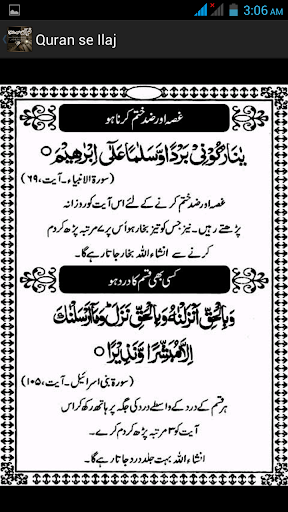 3:06 AM
Quran se Ilaj
غصہ اور ضد ختم کرنا ہو
يٰنَارُكُوۡنِىۡ بَرۡدًا وَّسَلٰمًا عَلٰٓى اِبۡرٰهِيۡمَ ○
(سورۃ الانبیاء، آیت، ۶۹)
غصہ اور ضد ختم کرنے کے لئے اس آیت کو روزانہ
پڑھتے رہیں۔ نیز جس کو تیز بخار ہو اُس پر ۷ مرتبہ پڑھ کر دم
کرنے سے انشاءاللہ بخار جاتا رہے گا۔
کسی بھی قسم کا درد ہو
وَبِالۡحَقِّ اَنۡزَلۡنٰهُ وَبِالۡحَقِّ نَزَلَ ؕ وَمَاۤ اَرۡسَلۡنٰكَ
اِلَّا مُبَشِّرًا وَّنَذِيۡرًا ○
(سورۃ بنی اسرائیل۔ آیت، ۱۰۵)
ہر قسم کے درد کے واسطے درد کی جگہ پر ہاتھ رکھ کر اس
آیت کو ۳ مرتبہ پڑھ کر دم کرے۔
انشاءاللہ بہت جلد درد جاتا رہے گا۔